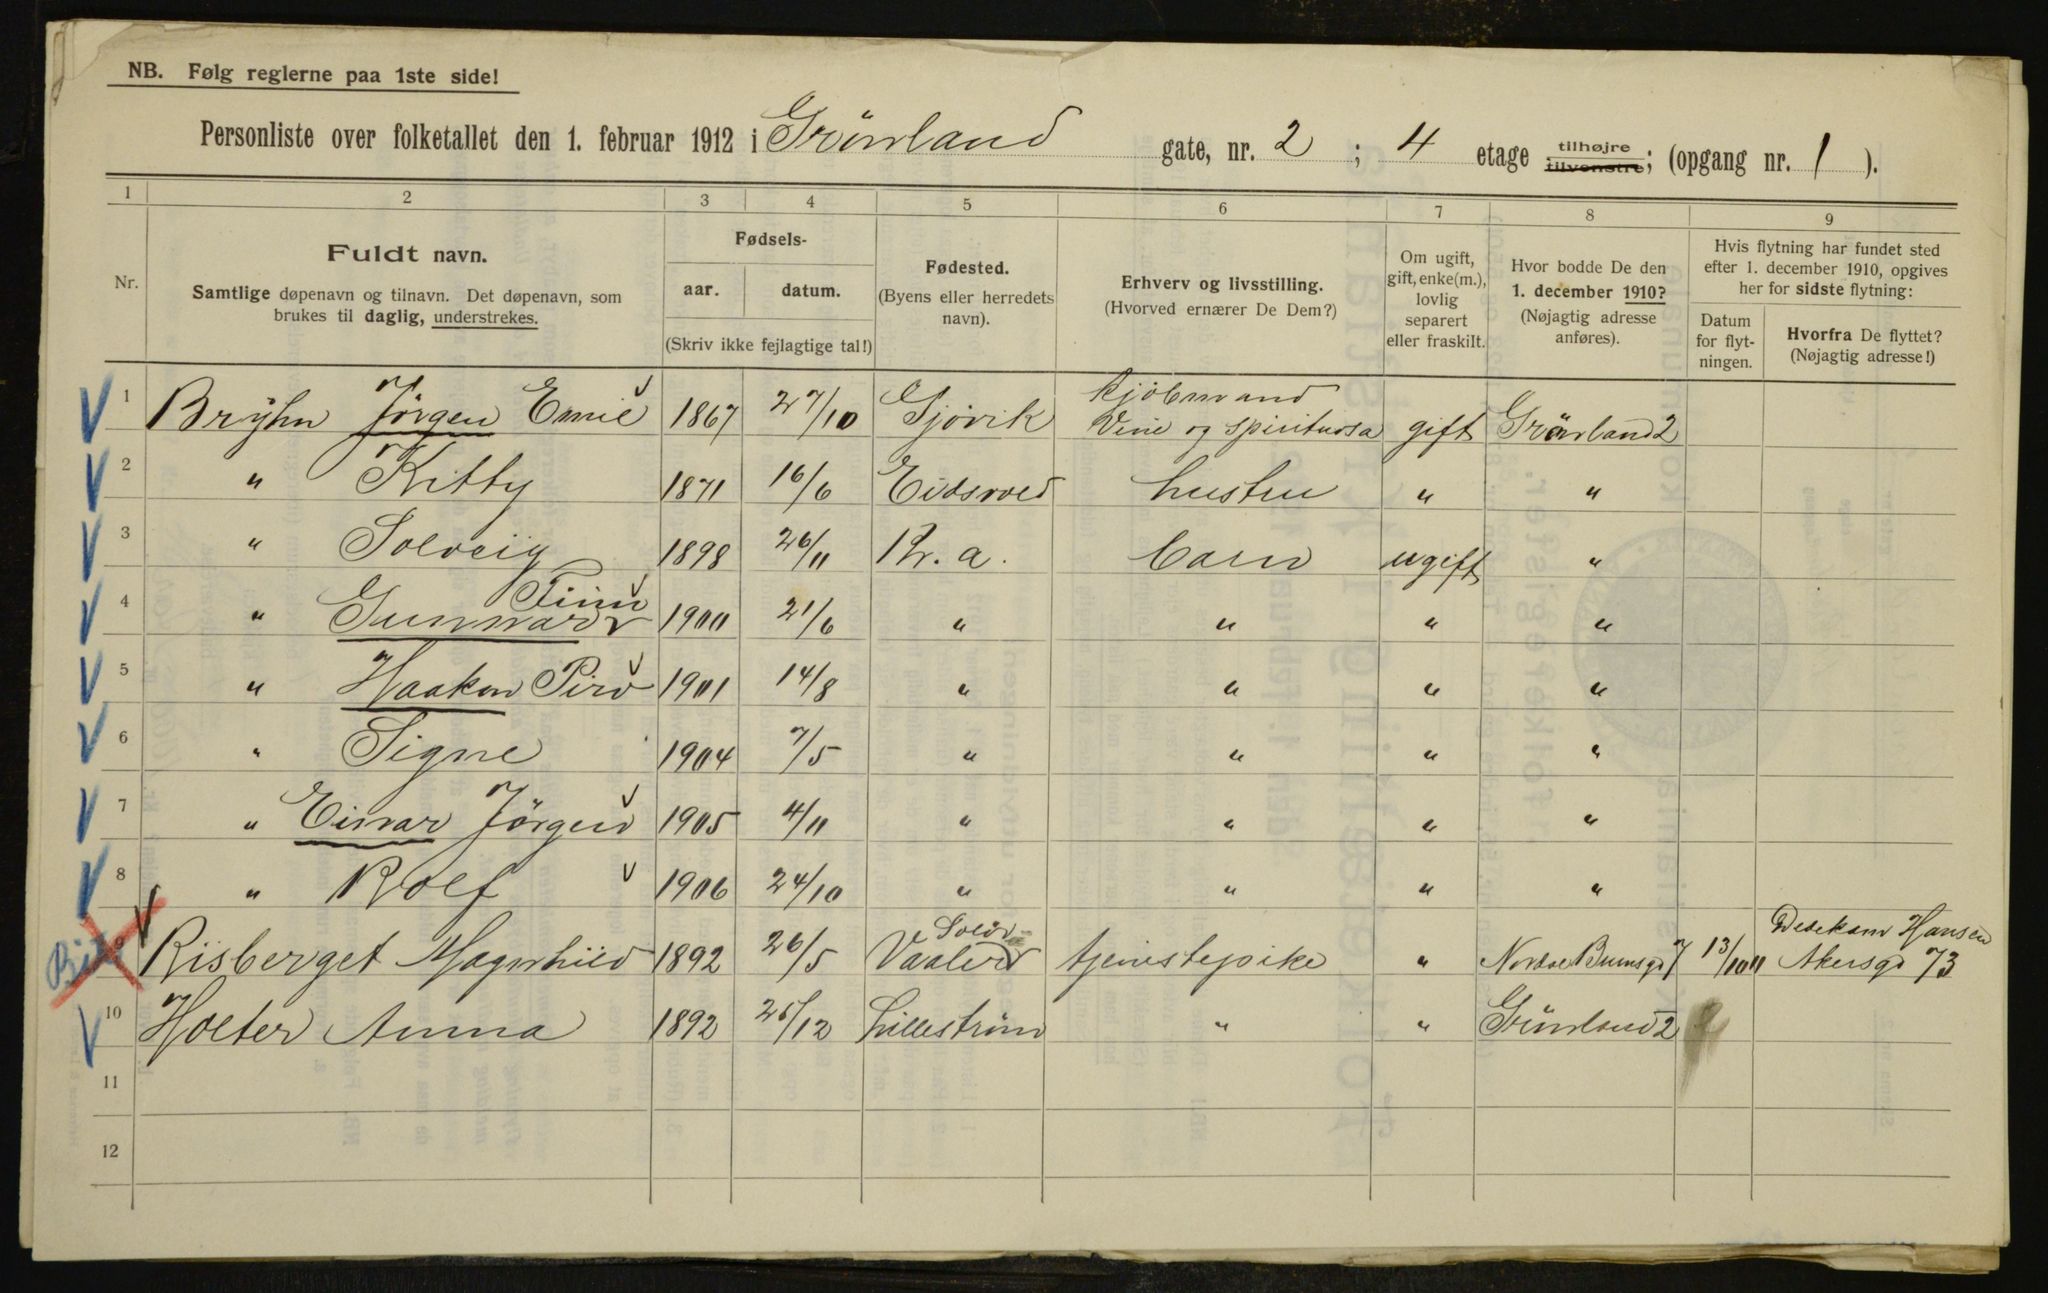 NB. Følg reglerne paa 1ste side!
Personliste over folketallet den 1. februar 1912 i Grønland gate, nr. 2 ; 4 etage tilhøjre tilvenstre; (opgang nr. 1 ).
1 2 3 4 5 6 7 8 9
Nr.
Fuldt navn.
Samtlige døpenavn og tilnavn. Det døpenavn, som
brukes til daglig, understrekes.
Fødsels-
aar. datum.
(Skriv ikke fejlagtige tal!)
Fødested.
(Byens eller herredets
navn).
Erhverv og livsstilling.
(Hvorved ernærer De Dem?)
Om ugift,
gift, enke(m.),
lovlig
separert
eller fraskilt.
Hvor bodde De den
1. december 1910?
(Nøjagtig adresse
anføres).
Hvis flytning har fundet sted
efter 1. december 1910, opgives
her for sidste flytning:
Datum
for flyt-
ningen.
Hvorfra De flyttet?
(Nøjagtig adresse!)
1 Bryhn Jørgen Emil 1867 27/10 Gjøvik Kjøbmand Vine og spirituosa gift Grønland 2
2 " Kitty 1871 16/6 Eidsvold hustru " "
3 " Solveig 1898 26/11 Kr. a. barn ugift "
4 " Gunnar Finn 1900 21/6 " " " "
5 " Haakon 1901 14/8 " " " "
6 " Signe 1904 7/5 " " " "
7 " Einar Jörgen 1905 4/11 " " " "
8 " Rolf 1906 24/10 " " " "
9 Risberget Magnhild 1892 26/5 Vaaler Solør tjenestepike " Nordre 7 13/10 11 Hansen Akersg 73
10 Holter Anna 1892 25/12 Lillestrøm " " Grønland 2
11
12